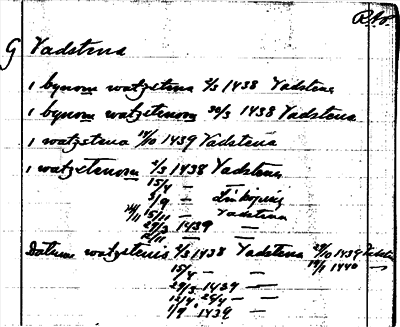 G Vadstena
i bynom watzstena 2/3 1438 Vadstena
i bynom watzstenom 30/3 1438 Vadstena
i watzstena 19/10 1439 Vadstena
i watzstenom 2/3 1438 Vadstena
15/4 — —
5/9 — Linköping
15/11 — Vadstena
29/3 1439 —
12/11 — —
Datum watzstenis 2/3 1438 Vadstena
15/4 — —
29/3 1439 —
12/4 24/4 — —
1/9 1439 —